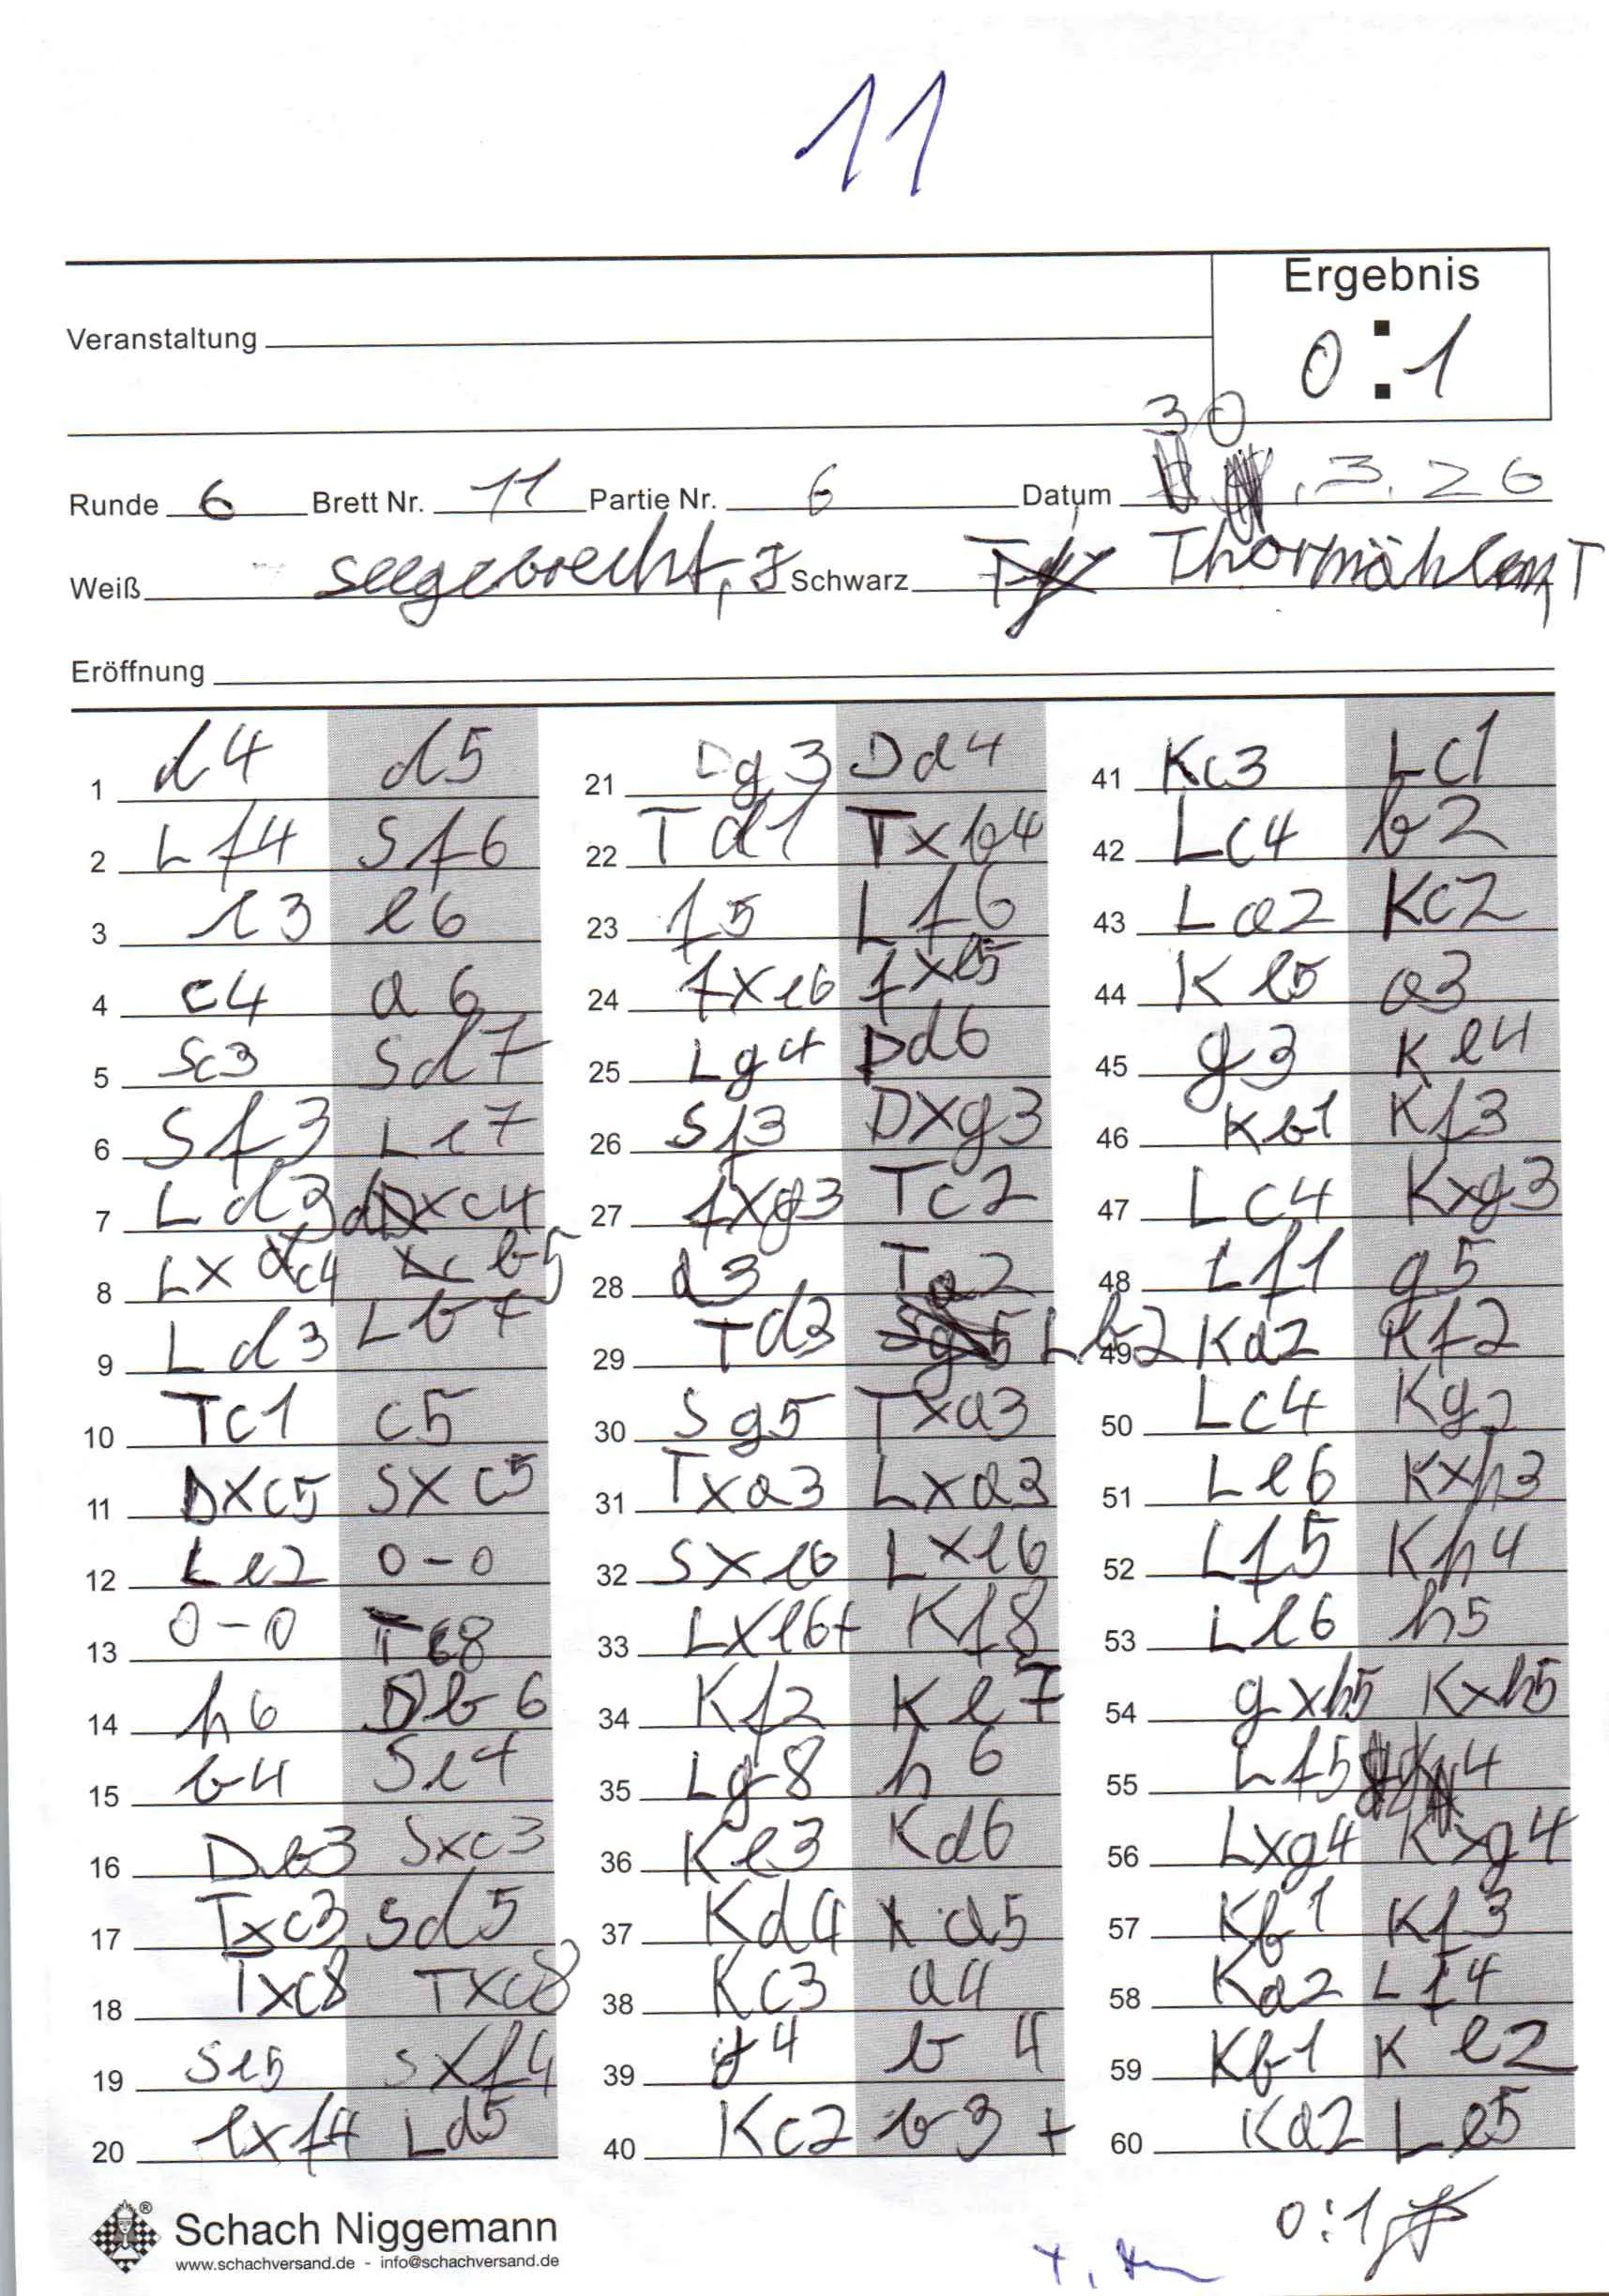 11
Ergebnis
Veranstaltung
0:1
30
Runde 6 Brett Nr. 11 Partie Nr. 6 Datum .3.26
Weiß Seegebrecht, J Schwarz Thormählen, T
Eröffnung
1 d4 d5
2 Lf4 Sf6
3 e3 e6
4 c4 a6
5 Sc3 Sd7
6 Sf3 Le7
7 Ld3 dxc4
8 Lxc4 b5
9 Ld3 Lb7
10 Tc1 c5
11 Dxc5 Sxc5
12 Le2 0-0
13 0-0 Tc8
14 h6 Db6
15 b4 Se4
16 Db3 Sxc3
17 Txc3 Sd5
18 Txc8 Txc8
19 Se5 Sxf4
20 exf4 Ld5
21 Dg3 Dd4
22 Td1 Txb4
23 f5 Lf6
24 fxe6 fxe5
25 Lg4 Dd6
26 Sf3 Dxg3
27 fxg3 Tc2
28 a3 Ta2
29 Td3 Lb2
30 Sg5 Txa3
31 Txa3 Lxa3
32 Sxe6 Lxe6
33 Lxe6+ Kf8
34 Kf2 Ke7
35 Lg8 h6
36 Ke3 Kd6
37 Kd4 a5
38 Kc3 a4
39 g4 b4
40 Kc2 b3+
41 Kc3 Lc1
42 Lc4 b2
43 La2 Kc2
44 K e5 a3
45 g3 Ke4
46 Kb1 Kf3
47 Lc4 Kxg3
48 Lf1 g5
49 Ka2 Kf2
50 Lc4 Kg2
51 Le6 Kxh3
52 Lf5 Kh4
53 Le6 h5
54 gxh5 Kxh5
55 Lf5 g4
56 Lxg4 Kxg4
57 Kb1 Kf3
58 Ka2 Lf4
59 Kb1 Ke2
60 Ka2 Le5
0:1
Schach Niggemann
www.schachversand.de - info@schachversand.de